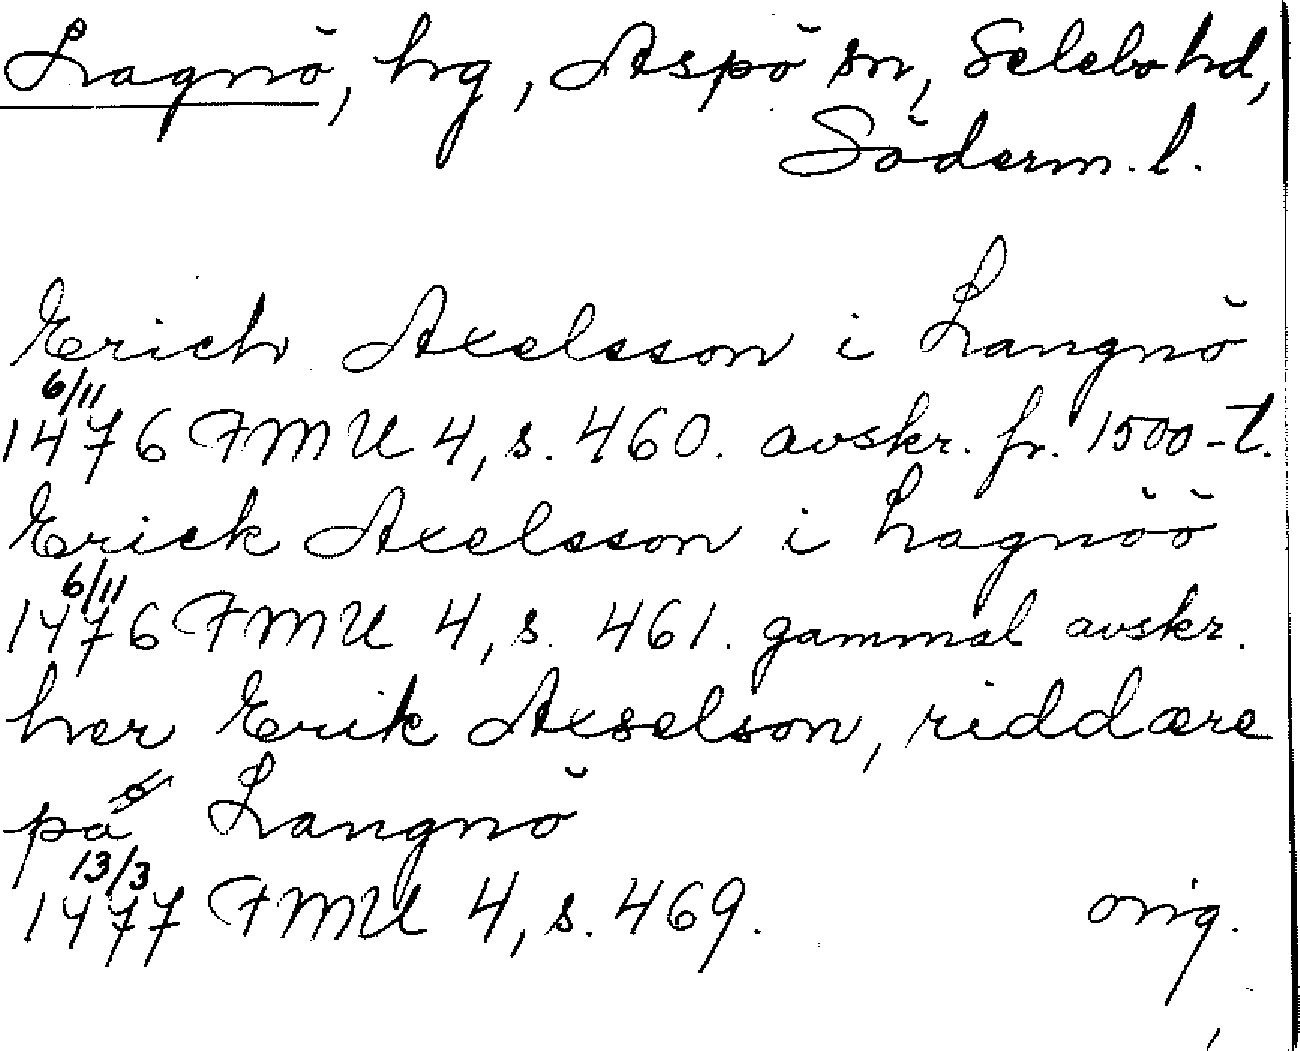 Lagnö, hg, Aspö sn, Selebo hd,
Söderm. l.
Erich Axelsson i Langnö
6/11
1476 FMU 4, s. 460. avskr. fr. 1500-t.
Erick Axelsson i Lagnöö
6/11
1476 FMU 4, s. 461. gammal avskr.
her Erik Axselson, riddære
pa Langnö
13/3
1477 FMU 4, s. 469. orig.